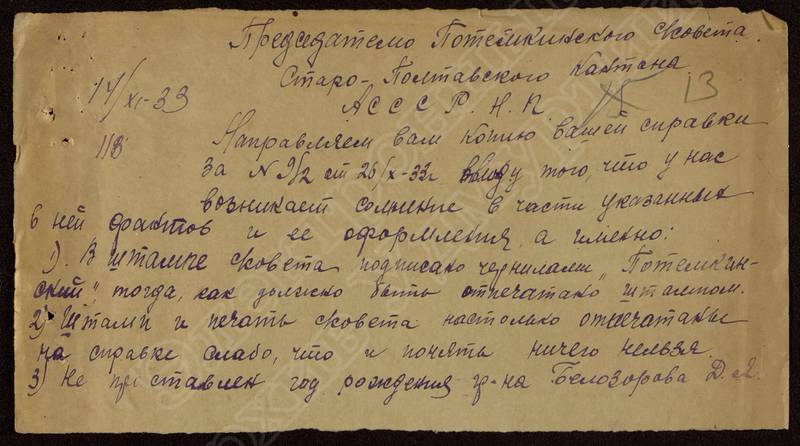 Председателю Потемкинского с/совета
Старо-Полтавского кантона
14/XI-33
АСССР. Н. П.
13
118
Направляем вам копию вашей справки
за N 9/2 от 26/X-33г ввиду того, что у нас
возникает сомнение в части указанных
в ней фактов и ее оформления, а именно:
1). В штампе с/совета подписано чернилами „Потемкин-
ский", тогда, как должно быть отпечатано штампом.
2) Штамп и печать с/совета настолько отпечатаны
на справке слабо, что и понять ничего нельзя.
3) Не проставлен год рождения гр-на Белозорова Д.Я.